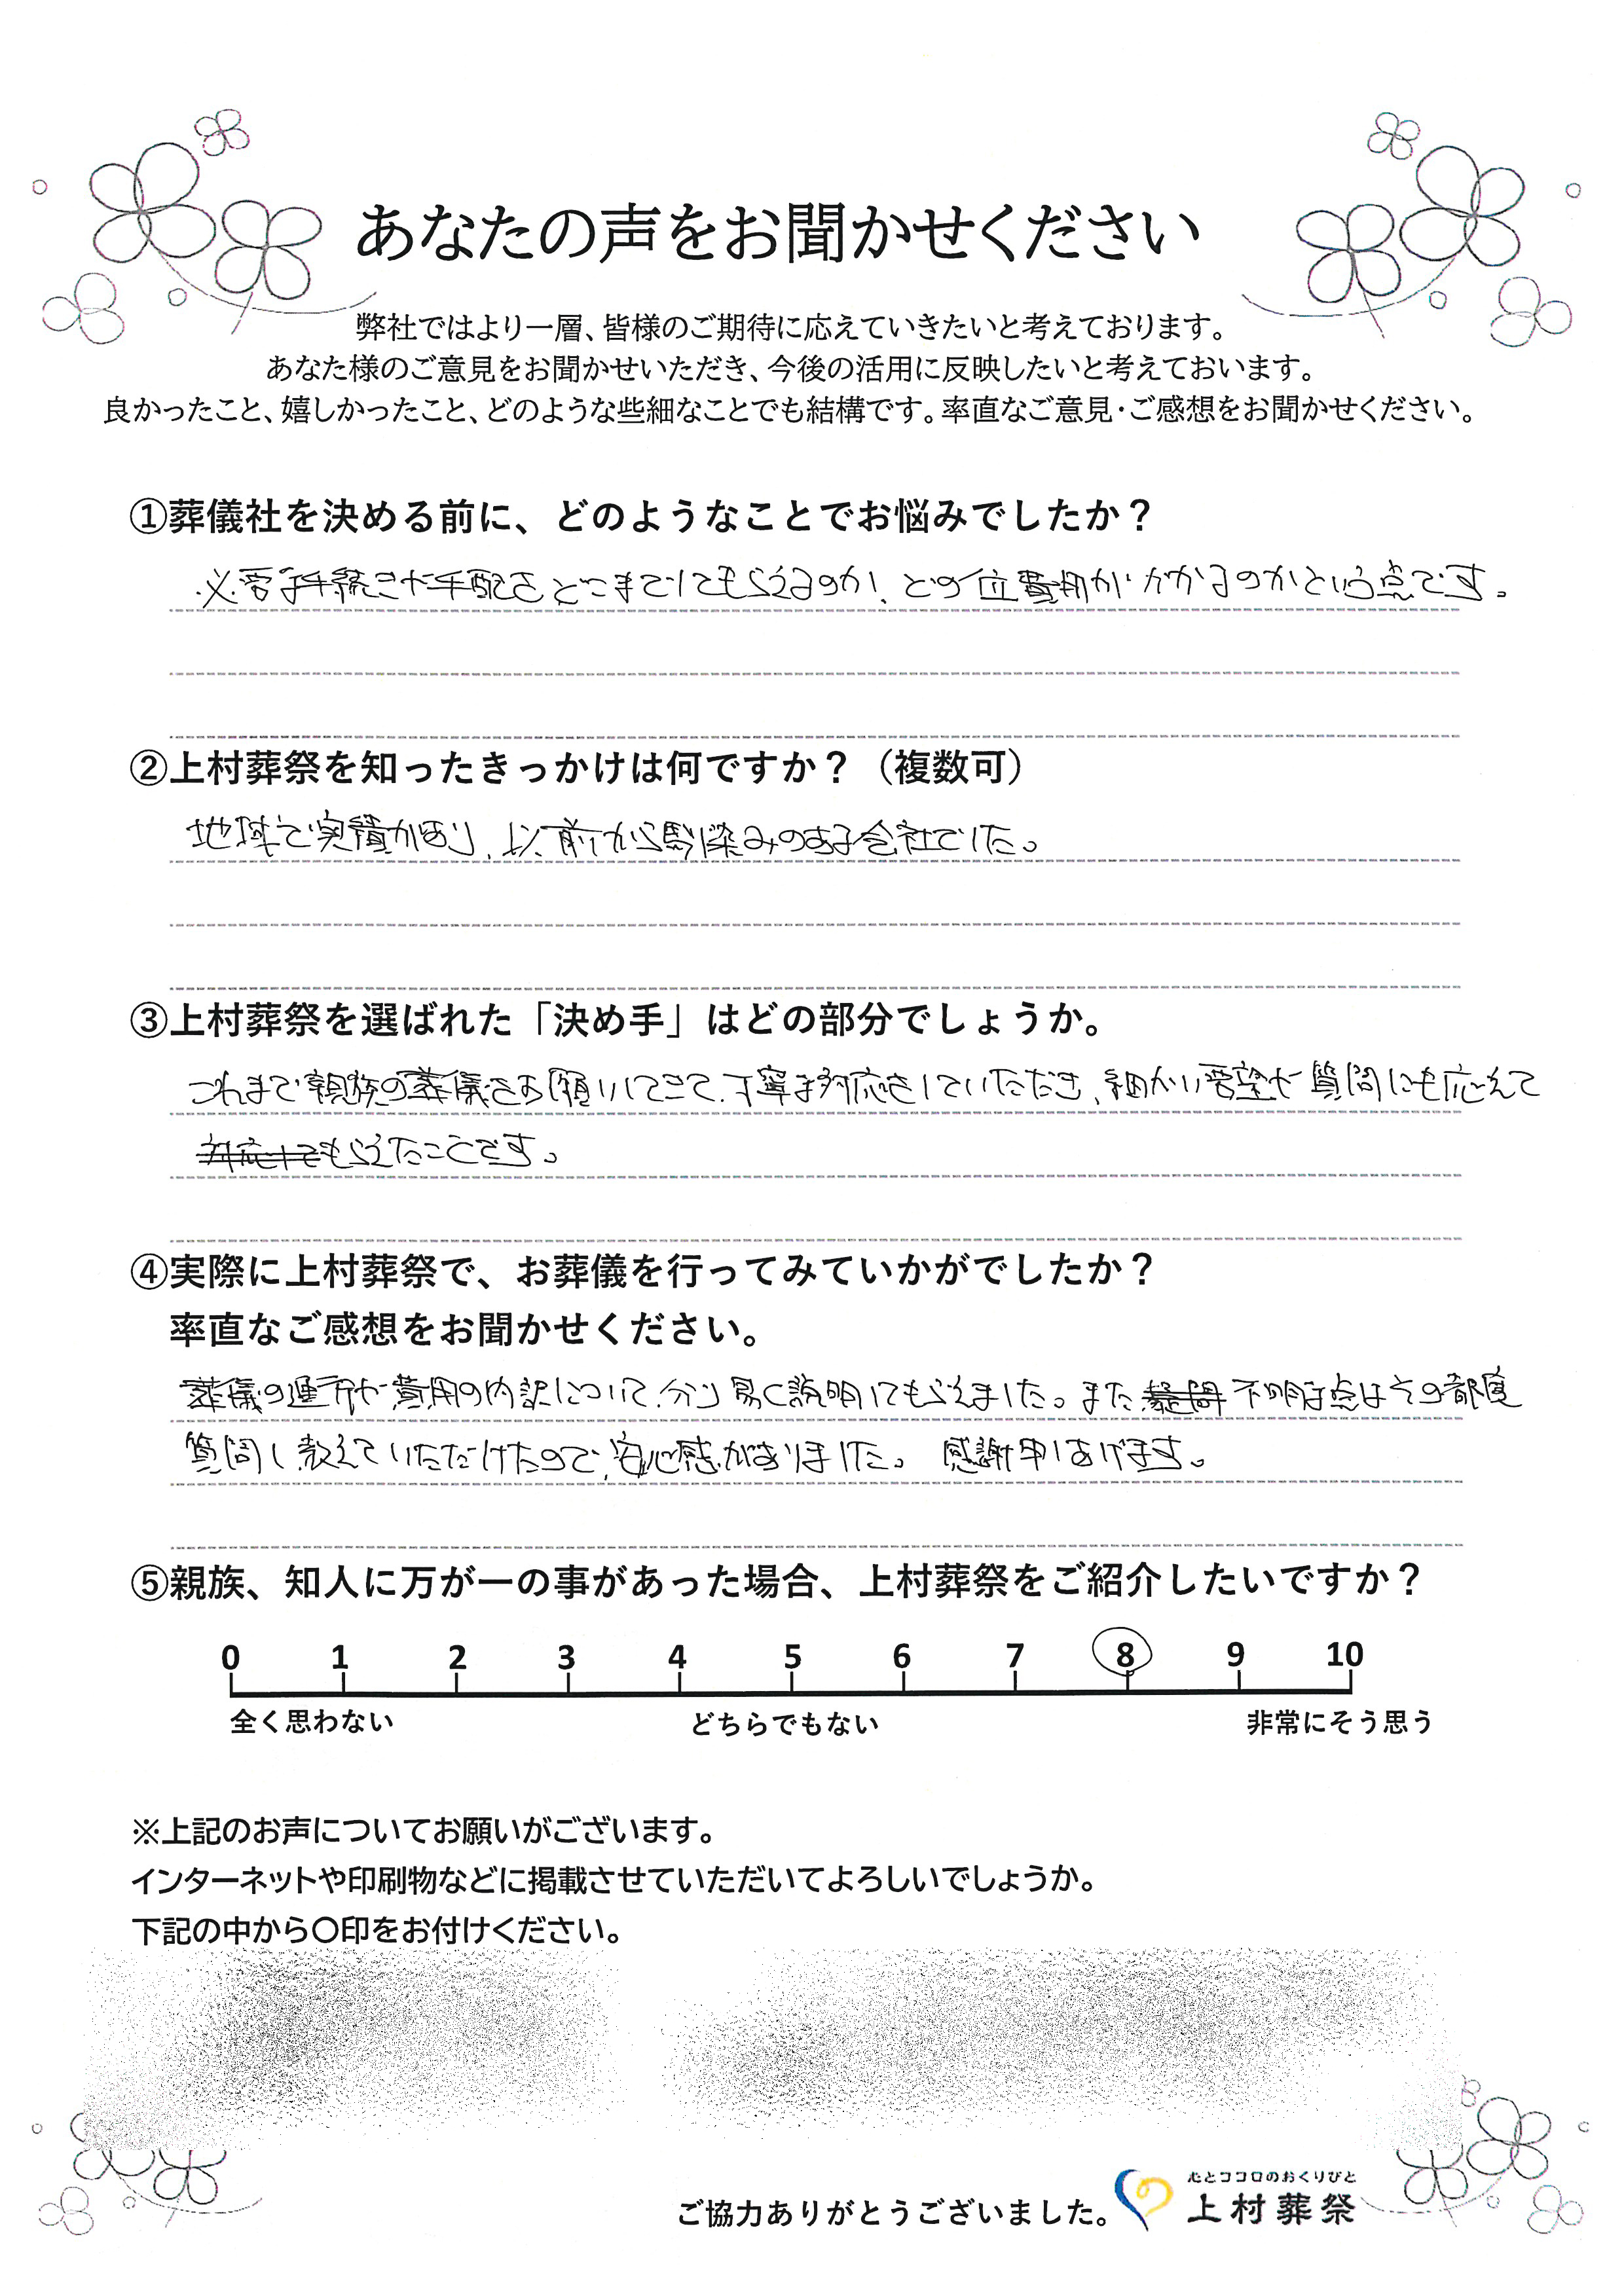 あなたの声をお聞かせください
弊社ではより一層、皆様のご期待に応えていきたいと考えております。
あなた様のご意見をお聞かせいただき、今後の活用に反映したいと考えておいます。
良かったこと、嬉しかったこと、どのような些細なことでも結構です。率直なご意見・ご感想をお聞かせください。
①葬儀社を決める前に、どのようなことでお悩みでしたか？
必要な手続きや手配をどこまでしてもらえるのか、どの位費用がかかるのかという点です。
②上村葬祭を知ったきっかけは何ですか？（複数可）
地域で実績があり、以前から馴染みのある会社でした。
③上村葬祭を選ばれた「決め手」はどの部分でしょうか。
これまで親族の葬儀をお願いしてきて、丁寧な対応をしていただき、細かい要望や質問にも応えて
対応してもらえたことです。
④実際に上村葬祭で、お葬儀を行ってみていかがでしたか？
率直なご感想をお聞かせください。
葬儀の運行や費用の内訳について、分り易く説明してもらえました。また 疑問 不明な点はその都度
質問し教えていただけたので、安心感がありました。 感謝申しあげます。
⑤親族、知人に万が一の事があった場合、上村葬祭をご紹介したいですか？
0 1 2 3 4 5 6 7 8 9 10
全く思わない どちらでもない 非常にそう思う
※上記のお声についてお願いがございます。
インターネットや印刷物などに掲載させていただいてよろしいでしょうか。
下記の中から〇印をお付けください。
心とココロのおくりびと
ご協力ありがとうございました。 上村葬祭